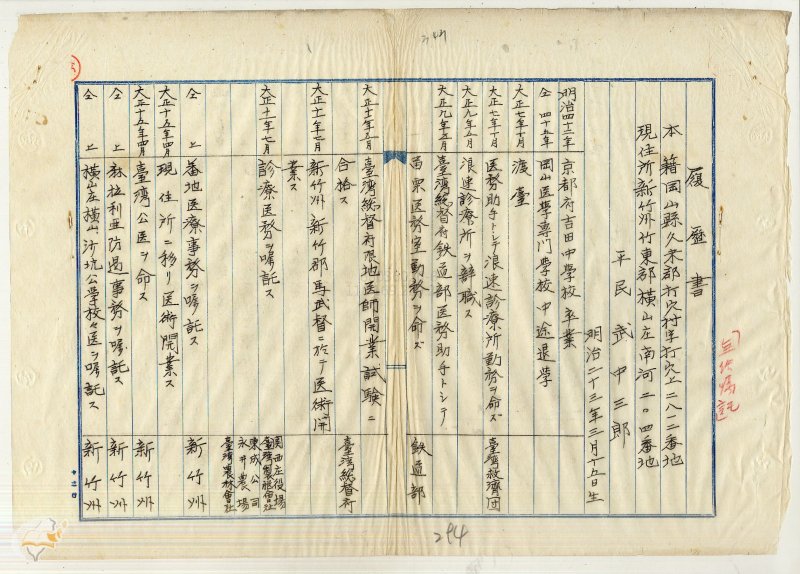 履歴書
本籍岡山縣久米郡打穴村字打穴上二八二番地
現住所新竹州竹東郡横山庄南河二〇四番地
平民 武中三郎
明治二十三年三月十五日生
明治四十二年 京都府吉田中学校卒業
仝 四十五年 岡山医学専門学校中途退学
大正七年十月 渡臺
大正七年十月 医務助手トシテ浪速診療所勤務ヲ命ズ 臺湾救済団
大正九年五月 浪速診療所ヲ辞職ス
大正九年五月 臺湾総督府鉄道部医務助手トシテ
苗栗医務室勤務ヲ命ズ 鉄道部
大正十一年五月 臺湾総督府限地医師開業試験ニ
合格ス 臺湾総督府
大正十一年七月 新竹州新竹郡馬武督ニ於テ医術開
業ス
大正十一年七月 診療医務ヲ嘱託ス 関西庄役場
臺湾製脳會社
東成公司
永井農場
臺湾農林會社
仝 上 蕃地医療事務ヲ嘱託ス 新竹州
大正十五年四月 現住所ニ移リ医術開業ス
大正十五年四月 臺湾公医ヲ命ス 新竹州
仝 上 麻拉利亜防遏事務ヲ嘱託ス 新竹州
仝 上 横山庄横山沙坑公学校々医ヲ嘱託ス 新竹州
294